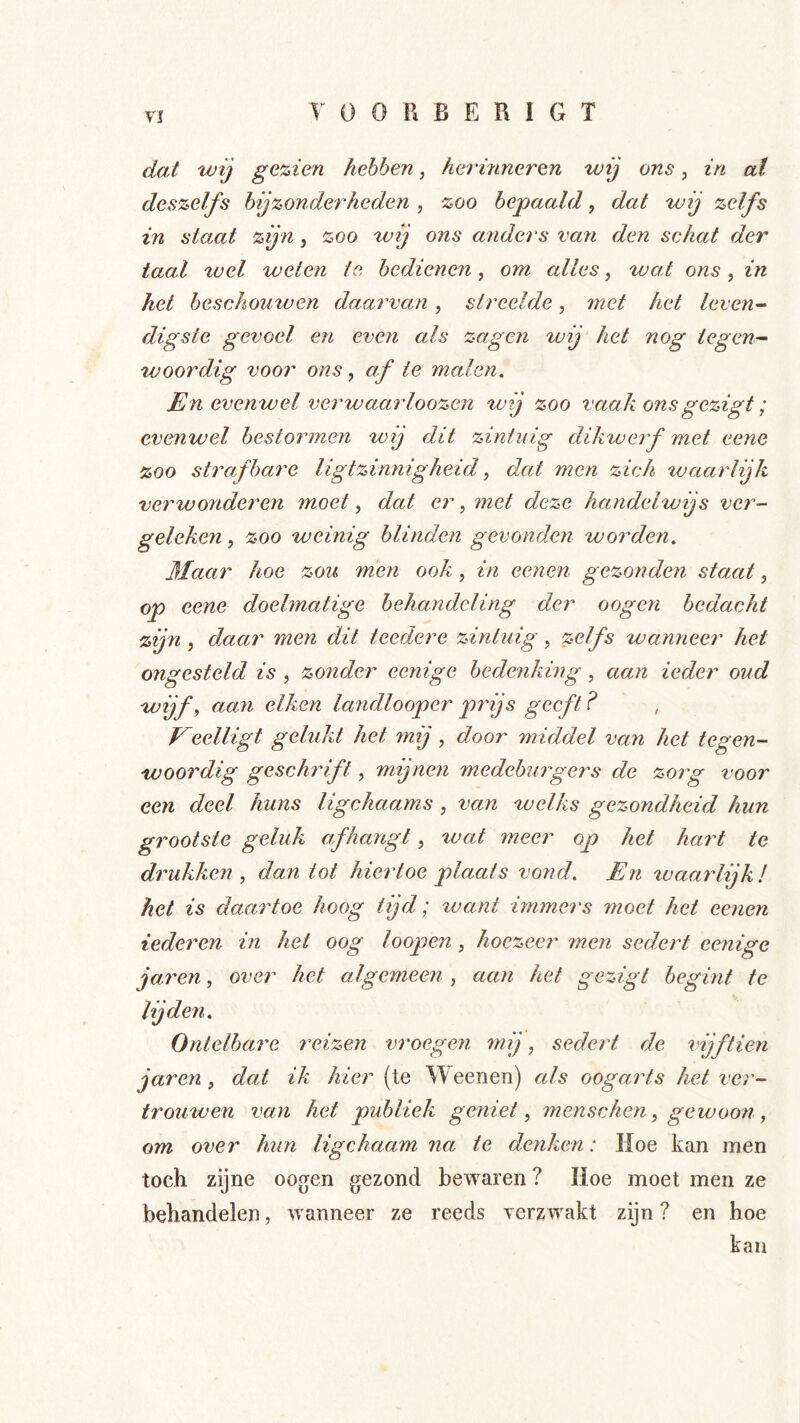 VI VOORBERIGT
dat wij gezien hebben, herinneren wij ons, in al
deszelfs bijzonderheden, zoo bepaald, dat wij zelfs
in staat zijn, zoo wij ons anders van den schat der
taal wel weten te bedienen, om alles, wat ons, in
het beschouwen daarvan, streelde, met het leven-
digste gevoel en even als zagen wij het nog tegen-
woordig voor ons, af te malen.
En evenwel verwaarloozen wij zoo vaak ons gezigt;
evenwel bestormen wij dit zintuig dikwerf met eene
zoo strafbare ligtzinnigheid, dat men zich waarlijk
verwonderen moet, dat er, met deze handelwijs ver-
geleken, zoo weinig blinden gevonden worden.
Maar hoe zou men ook, in eenen gezonden staat,
op eene doelmatige behandeling der oogen bedacht
zijn, daar men dit teedere zintuig, zelfs wanneer het
ongesteld is, zonder eenige bedenking, aan ieder oud
wijf, aan elken landlooper prijs geeft?
Veelligt gelukt het mij, door middel van het tegen-
woordig geschrift, mijnen medeburgers de zorg voor
een deel huns ligchaams, van welks gezondheid hun
grootste geluk afhangt, wat meer op het hart te
drukken, dan tot hiertoe plaats vond. En waarlijk!
het is daartoe hoog tijd; want immers moet het eenen
iederen in het oog loopen, hoezeer men sedert eenige
jaren, over het algemeen, aan het gezigt begint te
lijden.
Ontelbare reizen vroegen mij, sedert de vijftien
jaren, dat ik hier (te Weenen) als oogarts het ver-
trouwen van het publiek geniet, menschen, gewoon,
om over hun ligchaam na te denken: Hoe kan men
toch zijne oogen gezond bewaren? Hoe moet men ze
behandelen, wanneer ze reeds verzwakt zijn? en hoe
kan